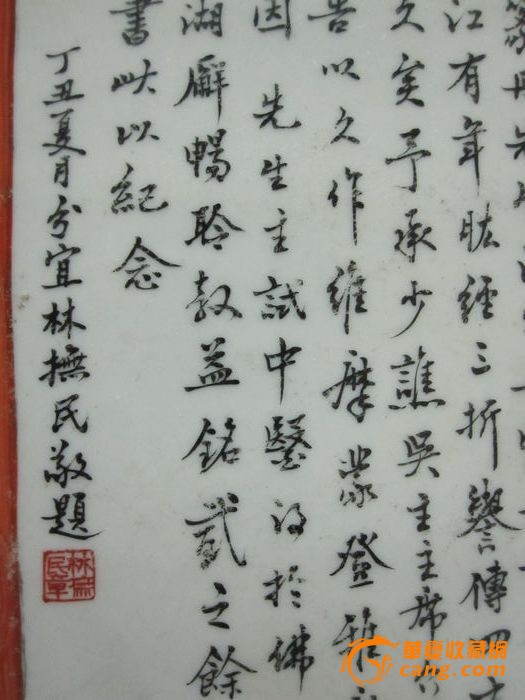 江有年肱經三折譽傳四
久矣予承少譙吳主主席
告以久作維摩蒙登雜
因 先生主試中醫得於佛
湖廨暢聆教益銘貳之餘
書此以紀念
丁丑夏月分宜林撫民敬題
華夏收藏網
cang.com